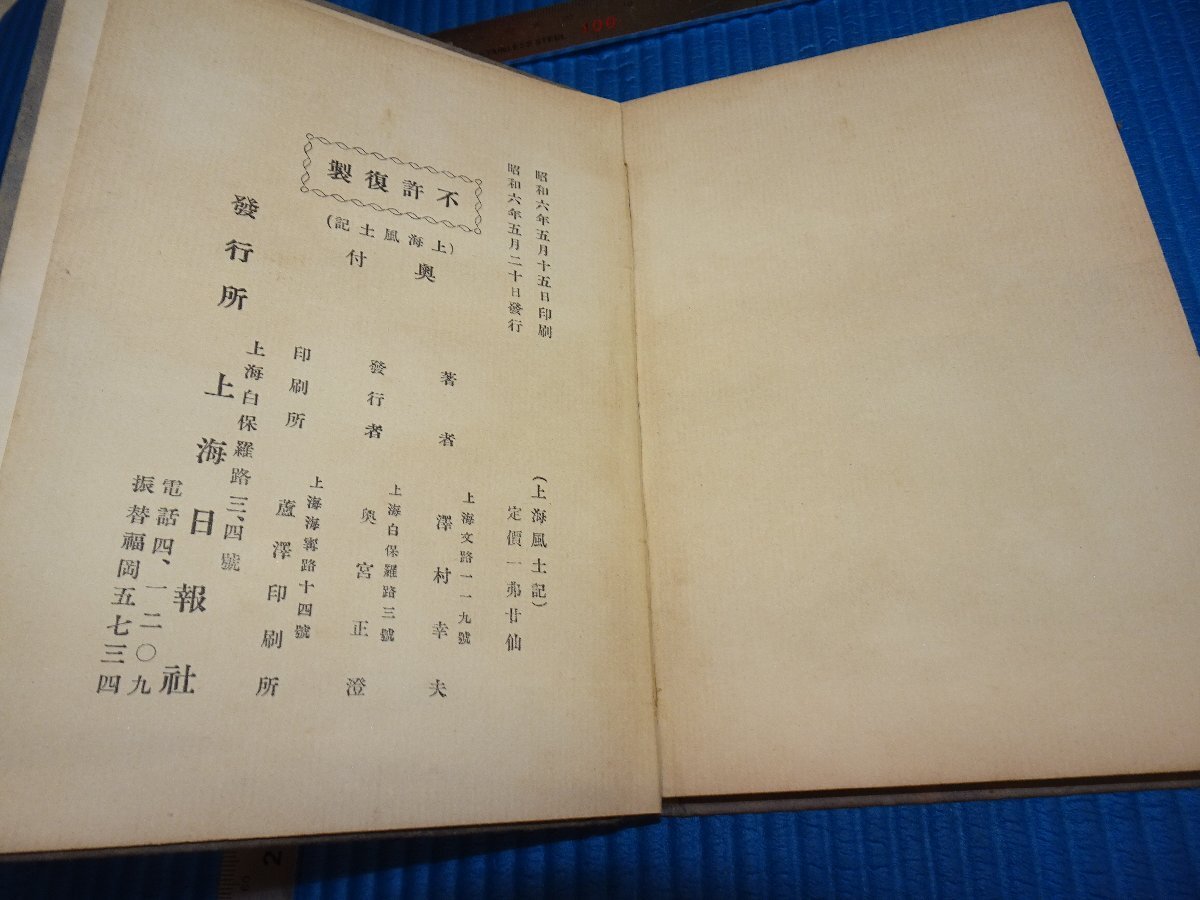 昭和六年五月十五日印刷
昭和六年五月二十日發行
不許復製
(上海風土記)
奥付
(上海風土記)
定價一弗廿仙
上海文路一一九號
著者 澤村幸夫
上海白保羅路三號
發行者 奥宮正澄
上海海寧路十四號
印刷所 蘆澤印刷所
上海白保羅路三、四號
發行所 上海日報社
電話四、一二〇九
振替福岡五七三四
STAINLESS STEEL
100